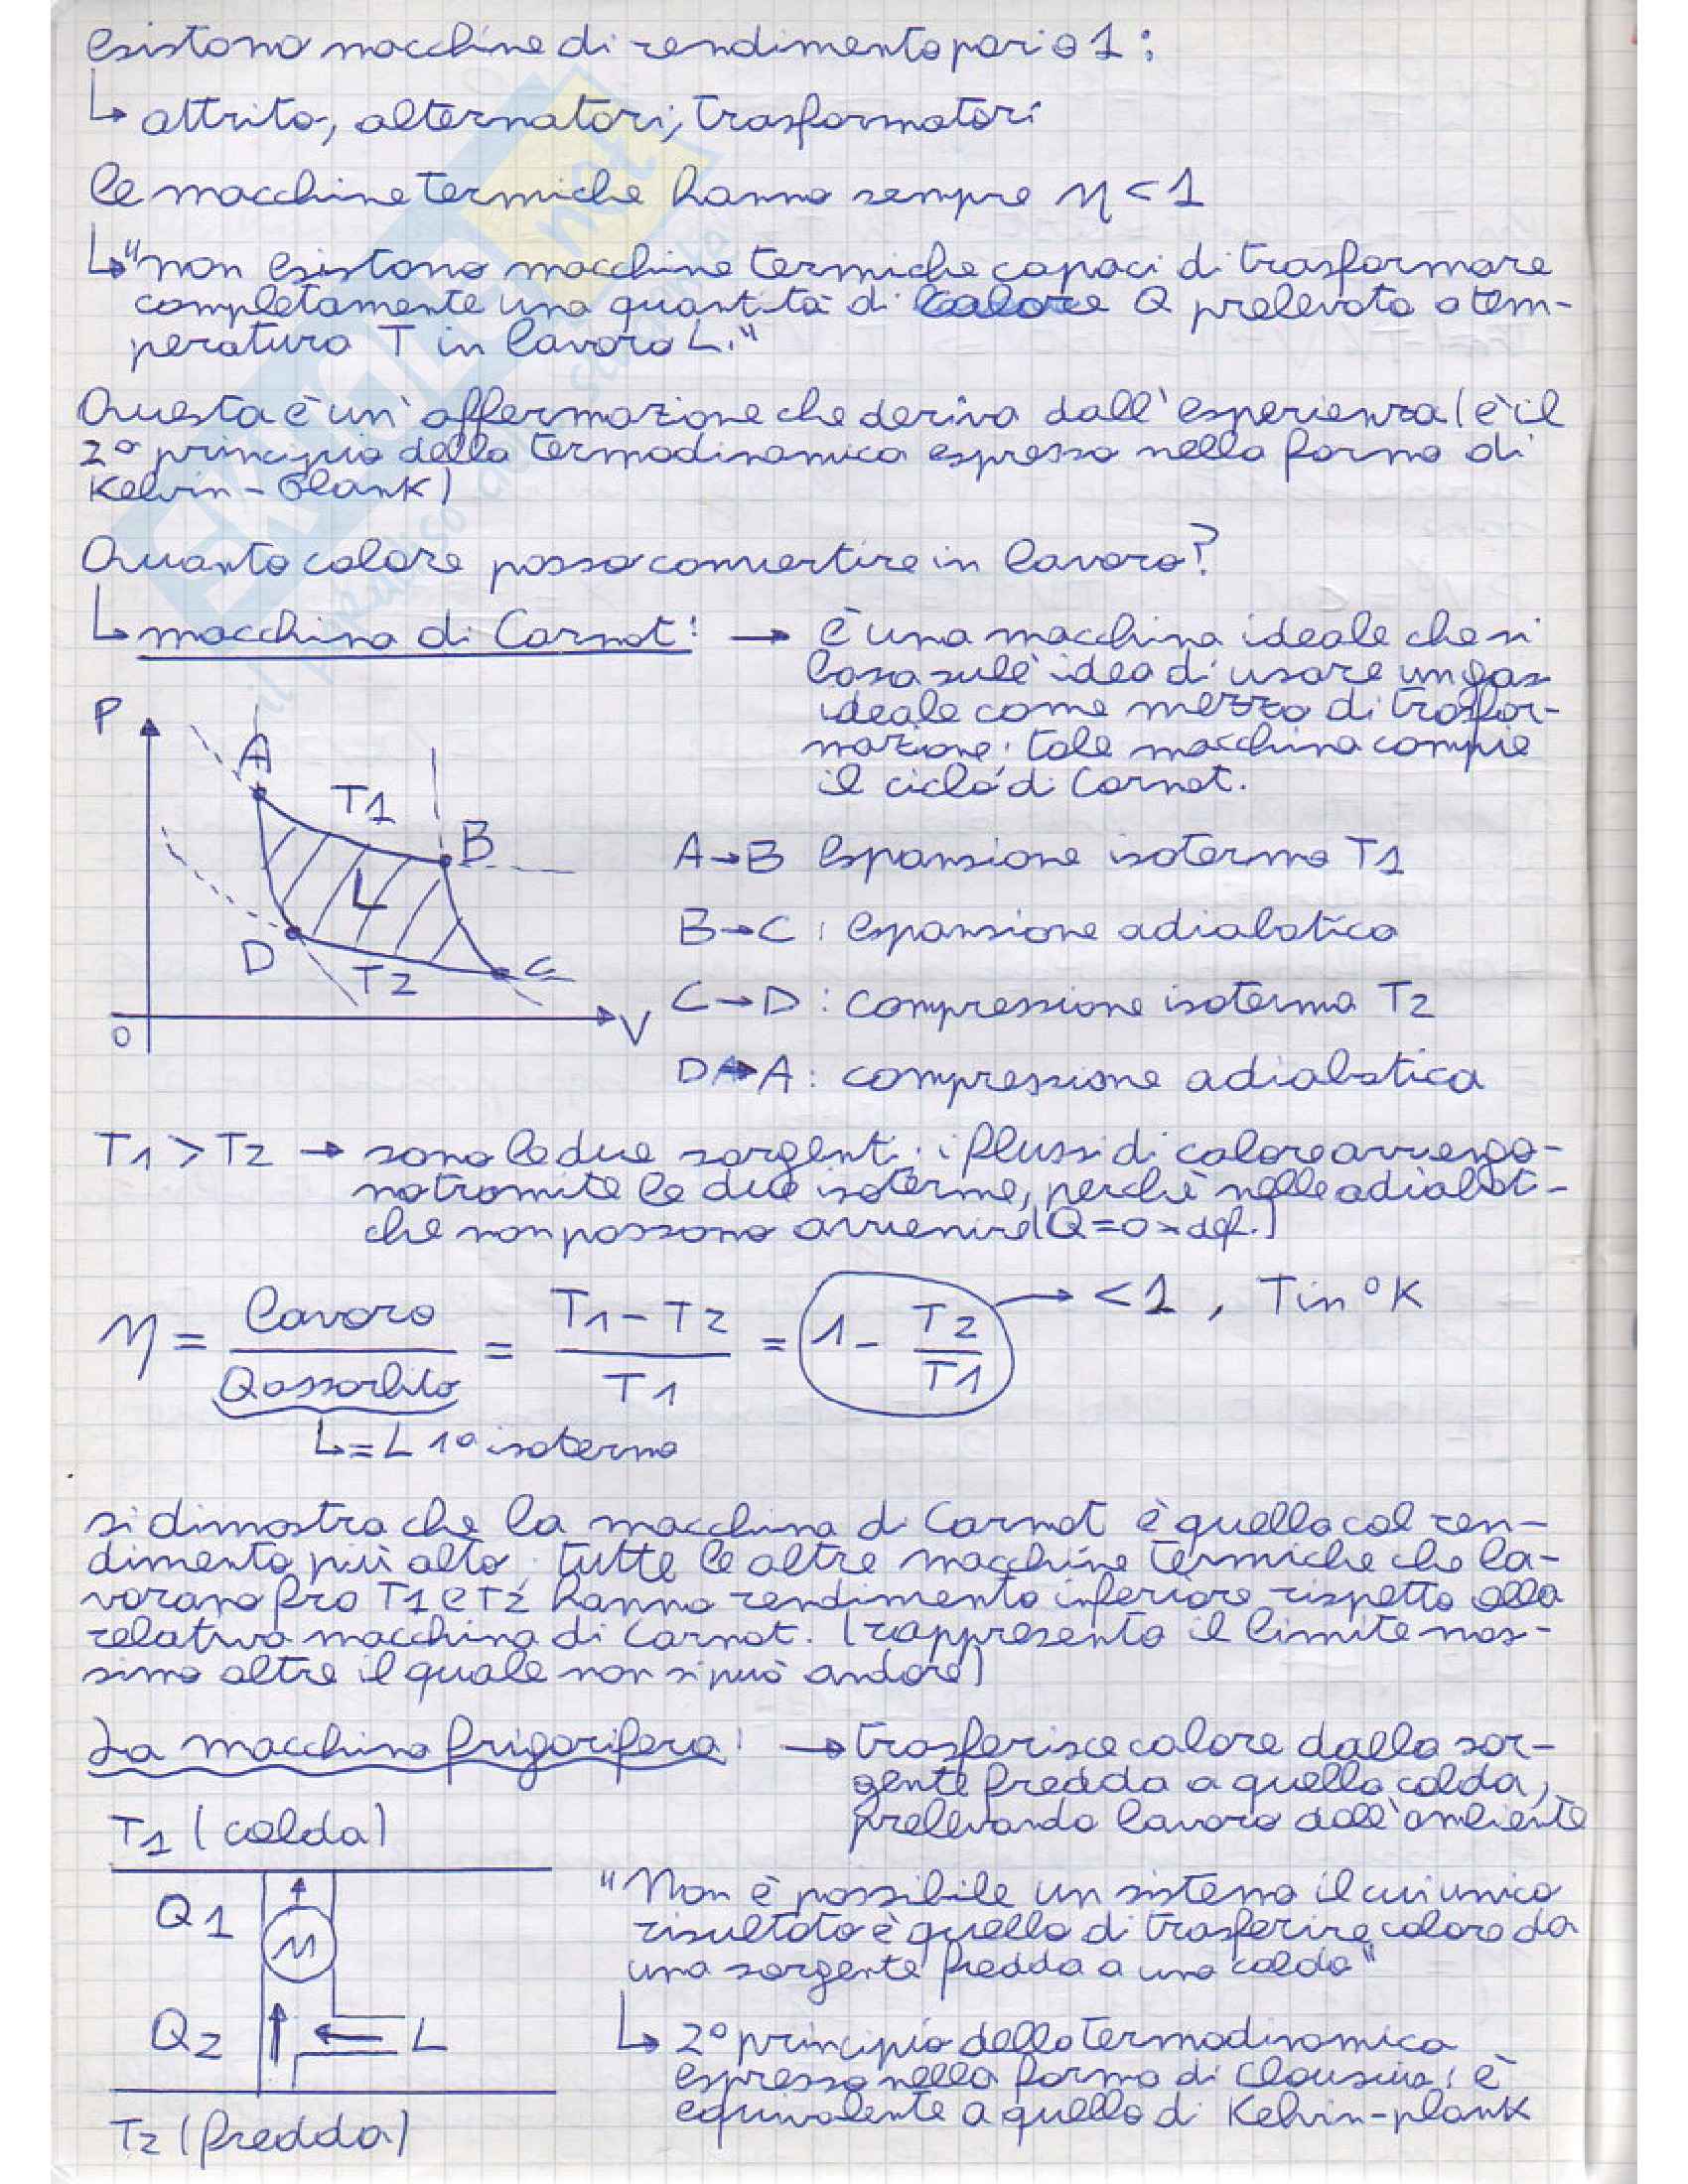 esistono macchine di rendimento pari a 1:
↳ attrito, alternatori, trasformatori
le macchine termiche hanno sempre η < 1
↳ "non esistono macchine termiche capaci di trasformare
completamente una quantità di calore Q prelevata a tem-
peratura T in lavoro L."
Questa è un'affermazione che deriva dall'esperienza (è il
2° principio della termodinamica espresso nella forma di
Kelvin-Plank)
Quanto calore posso convertire in lavoro?
↳ macchina di Carnot: → è una macchina ideale che si
basa sull'idea di usare un gas
ideale come mezzo di trasfor-
mazione; tale macchina compie
il ciclo di Carnot.
P
A
T1
B
L
D
T2
C
0
V
A→B espansione isoterma T1
B→C: espansione adiabatica
C→D: compressione isoterma T2
D→A: compressione adiabatica
T1 > T2 → sono le due sorgenti: i flussi di calore avvengo-
no tramite le due isoterme, perchè nelle adiabati-
che non possono avvenire (Q=0 x def.)
η = lavoro / Q assorbito = T1 - T2 / T1 = 1 - T2 / T1 → < 1 , T in °K
↳ = L 1° isoterma
si dimostra che la macchina di Carnot è quella col ren-
dimento più alto; tutte le altre macchine termiche che la-
vorano fra T1 e T2 hanno rendimento inferiore rispetto alla
relativa macchina di Carnot. (rappresenta il limite mas-
simo oltre il quale non si può andare)
La macchina frigorifera: → trasferisce calore dalla sor-
gente fredda a quella calda,
prelevando lavoro dall'ambiente
T1 (calda)
Q1
M
Q2
L
T2 (fredda)
"Non è possibile un sistema il cui unico
risultato è quello di trasferire calore da
una sorgente fredda a una calda"
↳ 2° principio della termodinamica
espresso nella forma di Clausius: è
equivalente a quello di Kelvin-plank
SKUOLA.net